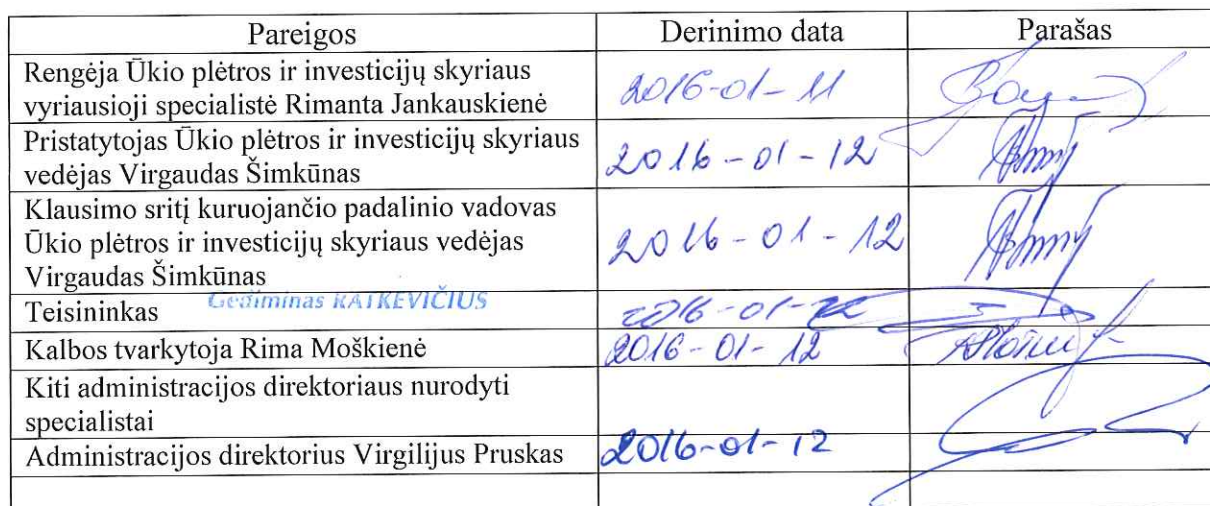 Pareigos Derinimo data Parašas
Rengėja Ūkio plėtros ir investicijų skyriaus
vyriausioji specialistė Rimanta Jankauskienė 2016-01-11
Pristatytojas Ūkio plėtros ir investicijų skyriaus
vedėjas Virgaudas Šimkūnas 2016-01-12
Klausimo sritį kuruojančio padalinio vadovas
Ūkio plėtros ir investicijų skyriaus vedėjas 2016-01-12
Virgaudas Šimkūnas
Gediminas RATKEVIČIUS
Teisininkas 2016-01-12
Kalbos tvarkytoja Rima Moškienė 2016-01-12
Kiti administracijos direktoriaus nurodyti
specialistai
Administracijos direktorius Virgilijus Pruskas 2016-01-12